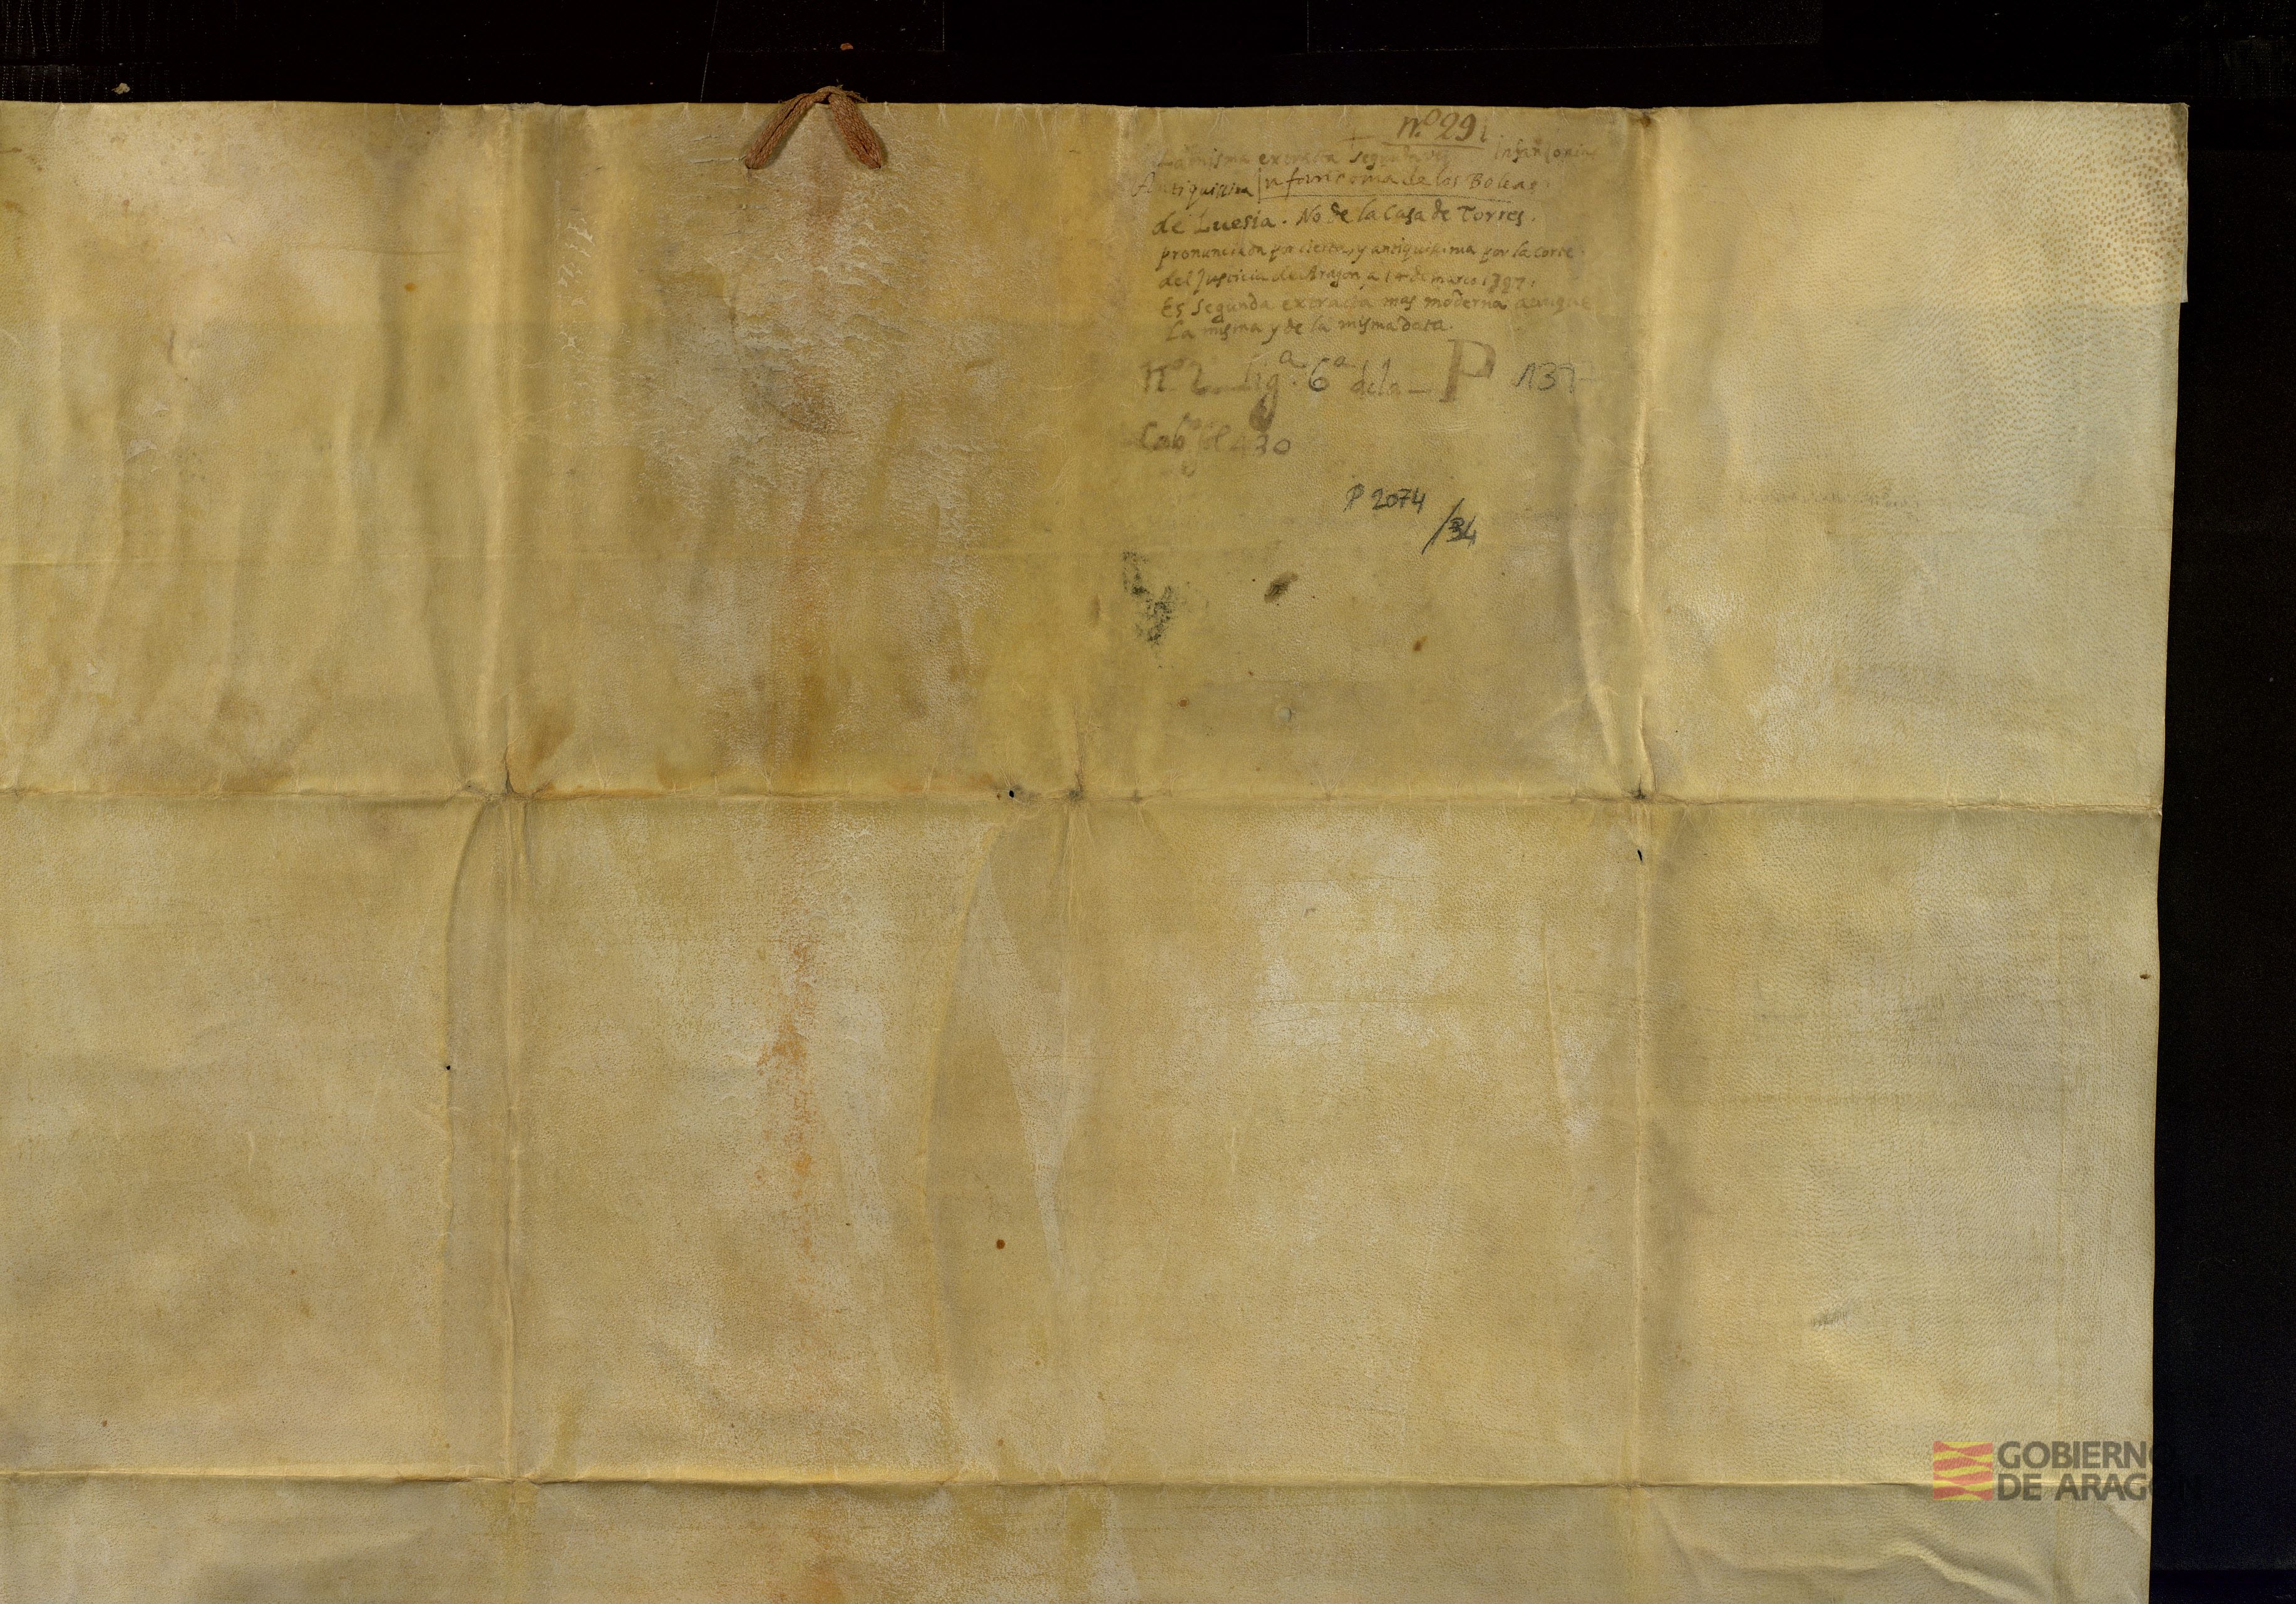 nº 29
La misma extracta segunda vez Infanzonia
Antiquissima Infanzonia de los Boleas
de Luesia. No de la Casa de Torres.
pronunciada por cierta, y antiquisima por la corte
del Justicia de Aragon a 14 de março 1397.
Es segunda extracta mas moderna aunque
La misma y de la misma data.
nº 2 Ligª. 6ª de la P 137
Cab fol 430
P 2074
/34
GOBIERNO
DE ARAGON